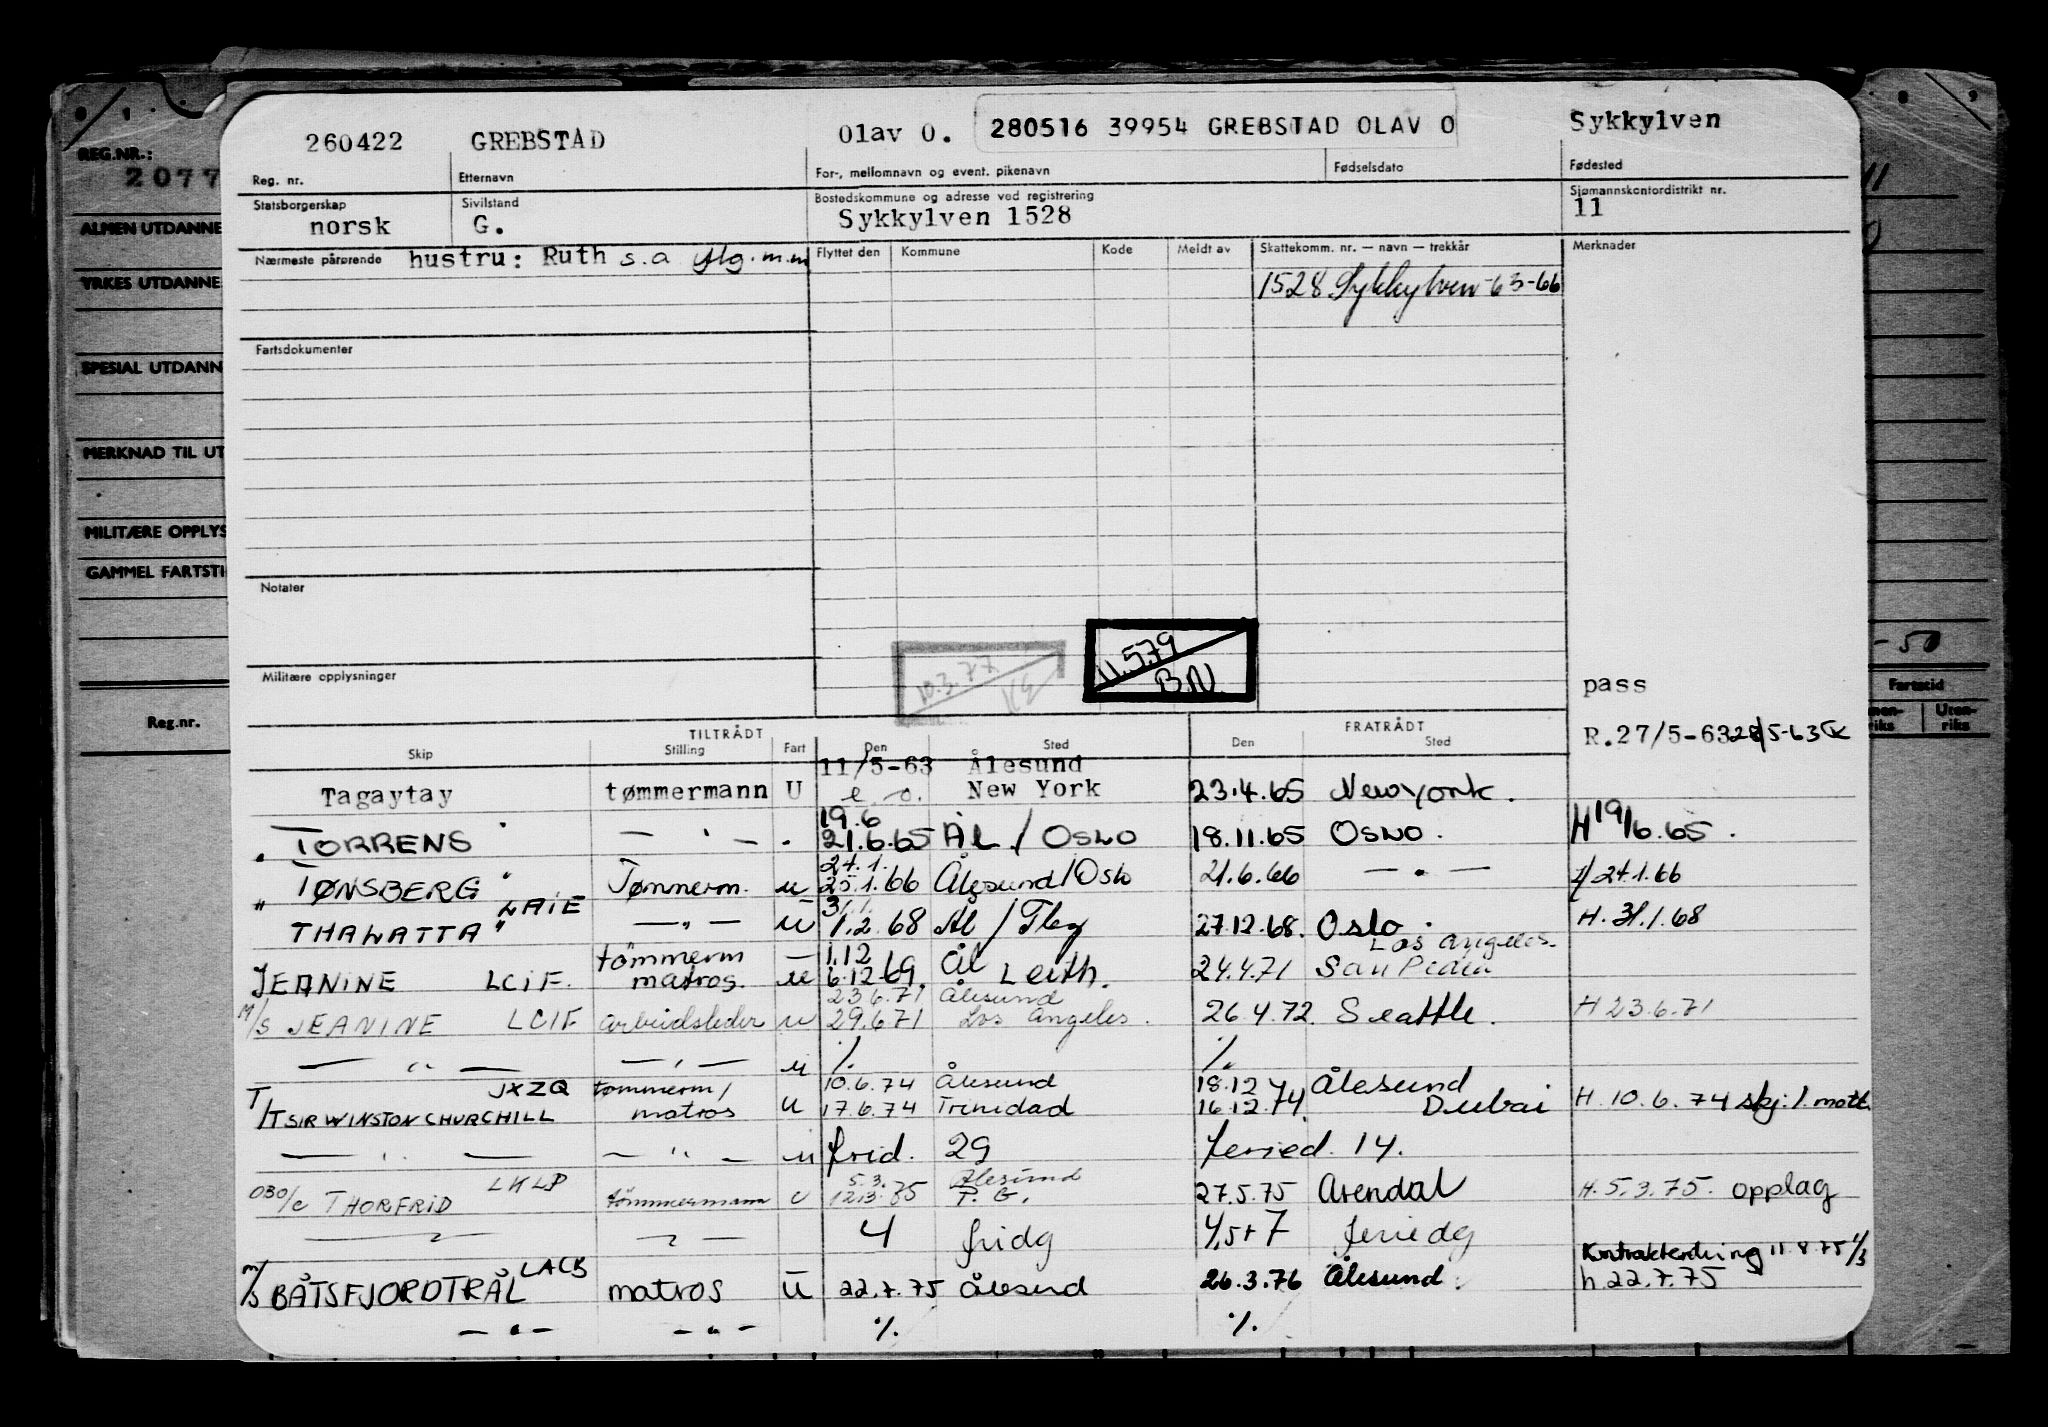 260422 GREBSTAD Olav O. 280516 39954 GREBSTAD OLAV O Sykkylven
Reg. nr. Etternavn For-, mellomnavn og event. pikenavn Fødselsdato Fødested
Statsborgerskap Sivilstand Bostedskommune og adresse ved registrering Sjømannskontordistrikt nr.
norsk G. Sykkylven 1528 11
Nærmeste pårørende hustru: Ruth s.a Flyttet den Kommune Kode Meldt av Skattekomm. nr. — navn — trekkår Merknader
1528 Sykkylven 63-66
Fartsdokumenter
Notater
10.3.77
11.5.79
B.N.
Militære opplysninger
pass
R.27/5-63 28/5-63
TILTRÅDT FRATRÅDT
Skip Stilling Fart Den Sted Den Sted
11/5-63 Ålesund
Tagaytay tømmermann U e.o. New York 23.4.65 New York.
19.6
" TORRENS " — " — " 21.6.65 ÅL / OSLO 18.11.65 OSLO. H 19/6.65.
24.1.
" TØNSBERG " Tømmerm. u 25.1.66 Ålesund/Oslo 21.6.66 — " — 24.1.66
LAIE 31.1.
THALATTA " — " — U 1.2.68 Ål / 27.12.68. Oslo. H. 31.1.68
tømmerm — 1.12 Ål Los Angeles.
JEANINE LCIF. matros. u 6.12.69. Leith. 24.4.71 San Pedro
23.6.71 Ålesund
M/S JEANINE LCIF arbeidsleder u 29.6.71 Los Angeles. 26.4.72. Seattle. H 23.6.71
— " — — " — u %. %.
JXZQ tømmerm/ 10.6.74 Ålesund 18.12 Ålesund
T/T SIR WINSTON CHURCHILL matros U 17.6.74 Trinidad 16.12.74 Dubai H. 10.6.74 skj. 1. mott.
— " — — " — u frid. 29 feried. 14.
LKLP 5.3. Ålesund
OBO/c THORFRID tømmermann U 12.3.75 T. G. 27.5.75 Arendal H. 5.3.75. opplag
— " — — " — 4 fridg 4,5+7 feriedg
LACB Kontraktendring 11.8.75
M/S BÅTSFJORDTRÅL matros U 22.7.75 Ålesund 26.3.76 Ålesund. h. 22.7.75
— " — — " — %. %.
REG.NR.:
2077
ALMEN UTDANNE
YRKES UTDANNE
SPESIAL UTDANN
MERKNAD TIL UT
MILITÆRE OPPLYS
GAMMEL FARTSTI
Reg.nr.
11
-50
Fartstid
riks Uten-
riks